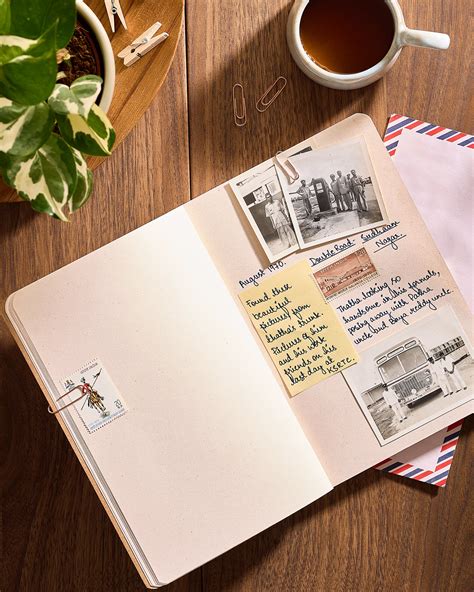 August 1970.
Double Road. Sudhama
Nagar.
Found these
beautiful
pictures from
thatha's trunk.
Pictures of him
and his work
friends on his
last day at
KSRTC.
Thatha looking so
handsome in his formals,
posing away with Padha
uncle and Biya reddy uncle.
20